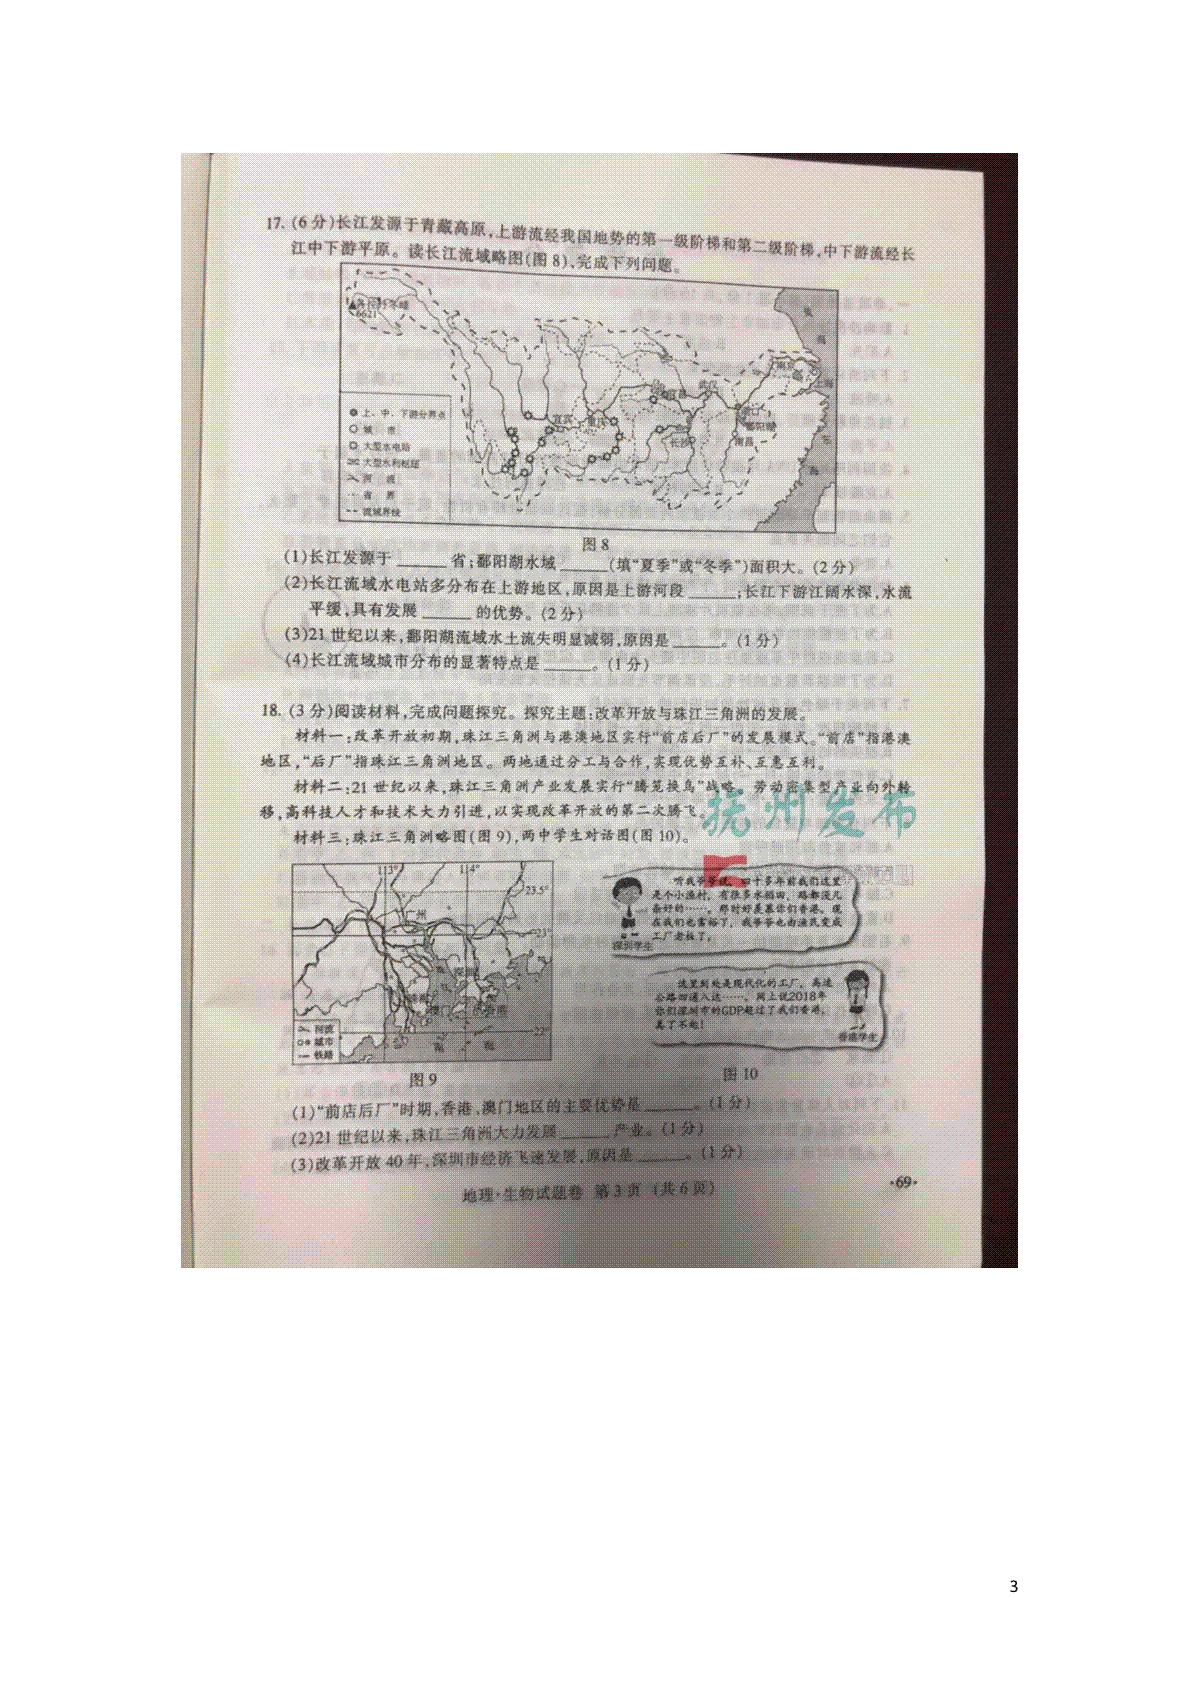 17. (6分)长江发源于青藏高原,上游流经我国地势的第一级阶梯和第二级阶梯,中下游流经长
江中下游平原。读长江流域略图(图8),完成下列问题。
各拉丹冬峰
6621
宜宾
重庆
宜昌
武汉
长沙
南昌
湖口
鄱阳湖
南京
上海
黄
海
东
海
上、中、下游分界点
城 市
大型水电站
大型水利枢纽
河 流
省 界
流域界线
图8
(1)长江发源于______省;鄱阳湖水域______(填“夏季”或“冬季”)面积大。(2分)
(2)长江流域水电站多分布在上游地区,原因是上游河段______;长江下游江阔水深,水流
平缓,具有发展______的优势。(2分)
(3)21世纪以来,鄱阳湖流域水土流失明显减弱,原因是______。(1分)
(4)长江流域城市分布的显著特点是______。(1分)
18. (3分)阅读材料,完成问题探究。探究主题:改革开放与珠江三角洲的发展。
材料一:改革开放初期,珠江三角洲与港澳地区实行“前店后厂”的发展模式。“前店”指港澳
地区,“后厂”指珠江三角洲地区。两地通过分工与合作,实现优势互补、互惠互利。
材料二:21世纪以来,珠江三角洲产业发展实行“腾笼换鸟”战略。劳动密集型产业向外转
移,高科技人才和技术大力引进,以实现改革开放的第二次腾飞。
抚州发布
材料三:珠江三角洲略图(图9),两中学生对话图(图10)。
113°
114°
23.5°
23°
22°
广州
深圳
珠海
澳门
香港
南
海
河流
城市
铁路
图9
听我爷爷说,四十多年前我们这里
是个小渔村,有很多水稻田,路都没几
条好的……。那时好羡慕你们香港。现
在我们也富裕了,我爷爷也由渔民变成
工厂老板了。
深圳学生
这里到处是现代化的工厂,高速
公路四通八达……。网上说2018年
你们深圳市的GDP超过了我们香港,
真了不起!
香港学生
图10
(1)“前店后厂”时期,香港、澳门地区的主要优势是______。(1分)
(2)21世纪以来,珠江三角洲大力发展______产业。(1分)
(3)改革开放40年,深圳市经济飞速发展,原因是______。(1分)
地理·生物试题卷 第3页 (共6页)
·69·
3